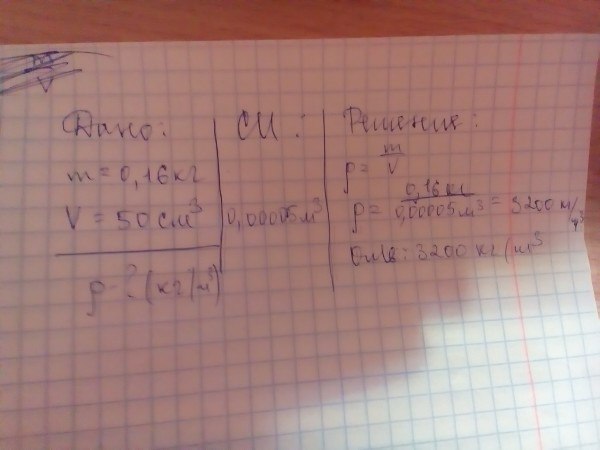 Дано:
m = 0,16 кг
V = 50 см³
ρ - ? (кг/м³)
СИ:
0,00005 м³
Решение:
ρ = m/V
ρ = 0,16 кг / 0,00005 м³ = 3200 м³
Отв: 3200 кг/м³